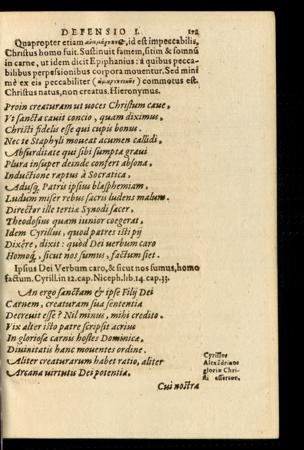 DEFENSIO I.
Quapropter etiam ἀναμάρτητος, id est impeccabilis,
Christus homo fuit. Sustinuit famem, sitim & somnũ
in carne, ut idem dicit Epiphanius: â quibus peccabilibus
perpessionibus corpora mouentur. Sed mini
mè ex eis peccabiliter commotus est.
Christus natus, non creatus. Hieronymus.
Proin creaturam ut uoces Christum caue,
Vt sancta cauit concio, quam diximus,
Christi fidelis esse qui cupis bonus.
Nec te Staphyli moueat acumen callidi,
Absurditate qui sibi sumpta graui
Plura insuper deinde confert absona,
Inductione raptus à Socratica,
Adusq; Patris ipsius blasphemiam,
Ludum miser rebus sacris ludens malum.
Director ille tertia Synodi sacer,
Theodosius quam iunior coegerat,
Idem Cyrillus, quod patres isti pij
Dixêre, dixit: quòd Dei uerbum caro
Homoq́;, sicut nos sumus, factum siet.
Ipsius Dei Verbum caro, & sicut nos sumus, homo
factum. Cyrill. in 12. cap. Niceph. lib. 14. cap. 33.
An ergo sanctam & ipse Filij Dei
Carnem, creaturam sua sententia
Decreuit esse? Nil minus, mihi credito.
Vix alter isto patre scripsit acrius
In gloriosæ carnis hostes Dominicæ,
Diuinitatis hanc mouentes ordine.
Aliter creaturarum habet ratio, aliter
Arcana uirtutu Dei potentia.
Cyrillus
Alexãdrinus
gloriæ Chri-
sti assertor.
Cui nostra